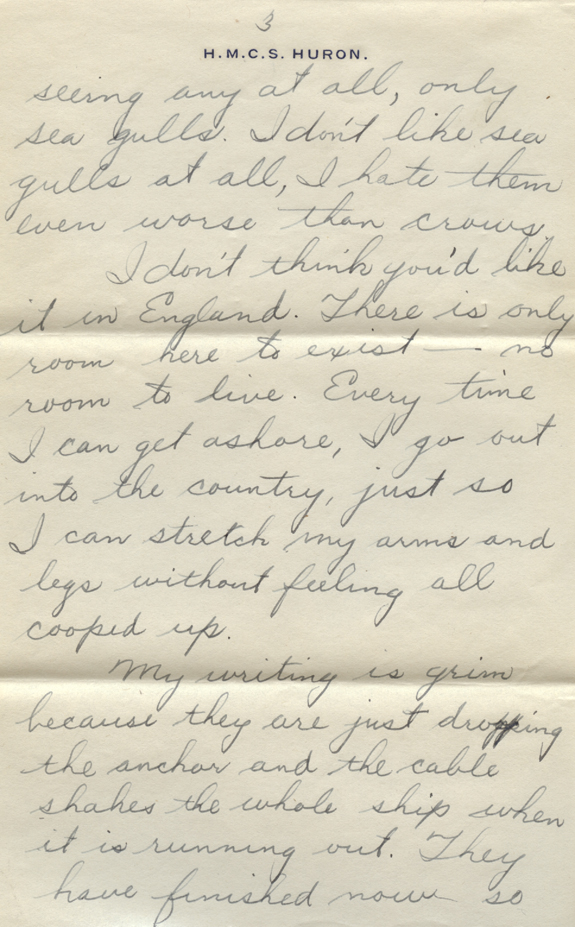 3
H.M.C.S. HURON.
seeing any at all, only
sea gulls. I don't like sea
gulls at all, I hate them
even worse than crows.
I don't think you'd like
it in England. There is only
room here to exist — no
room to live. Every time
I can get ashore, I go out
into the country, just so
I can stretch my arms and
legs without feeling all
cooped up.
My writing is grim
because they are just dropping
the anchor and the cable
shakes the whole ship when
it is running out. They
have finished now so